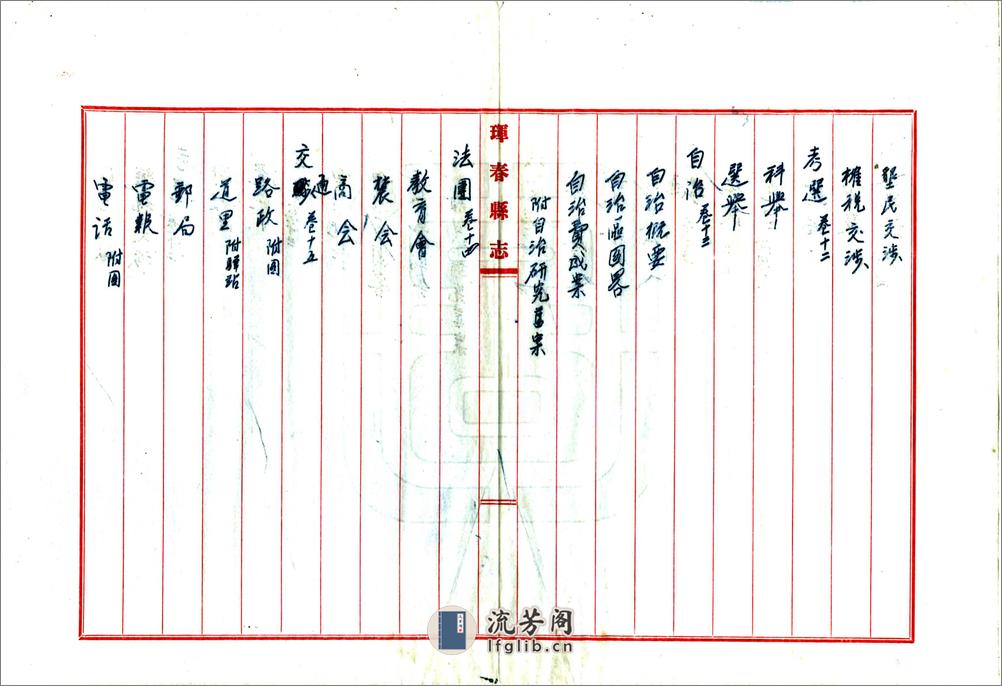 墾民交涉
榷税交涉
考選 卷十二
科舉
選舉
自治 卷十三
自治概要
自治區圖畧
自治費成案
附自治研究旧案
琿春縣志
法團 卷十四
教育會
農会
商会
交通 卷十五
路政 附圖
道里 附驛站
郵局
電報
電话 附圖
流芳阁
lfglib.cn